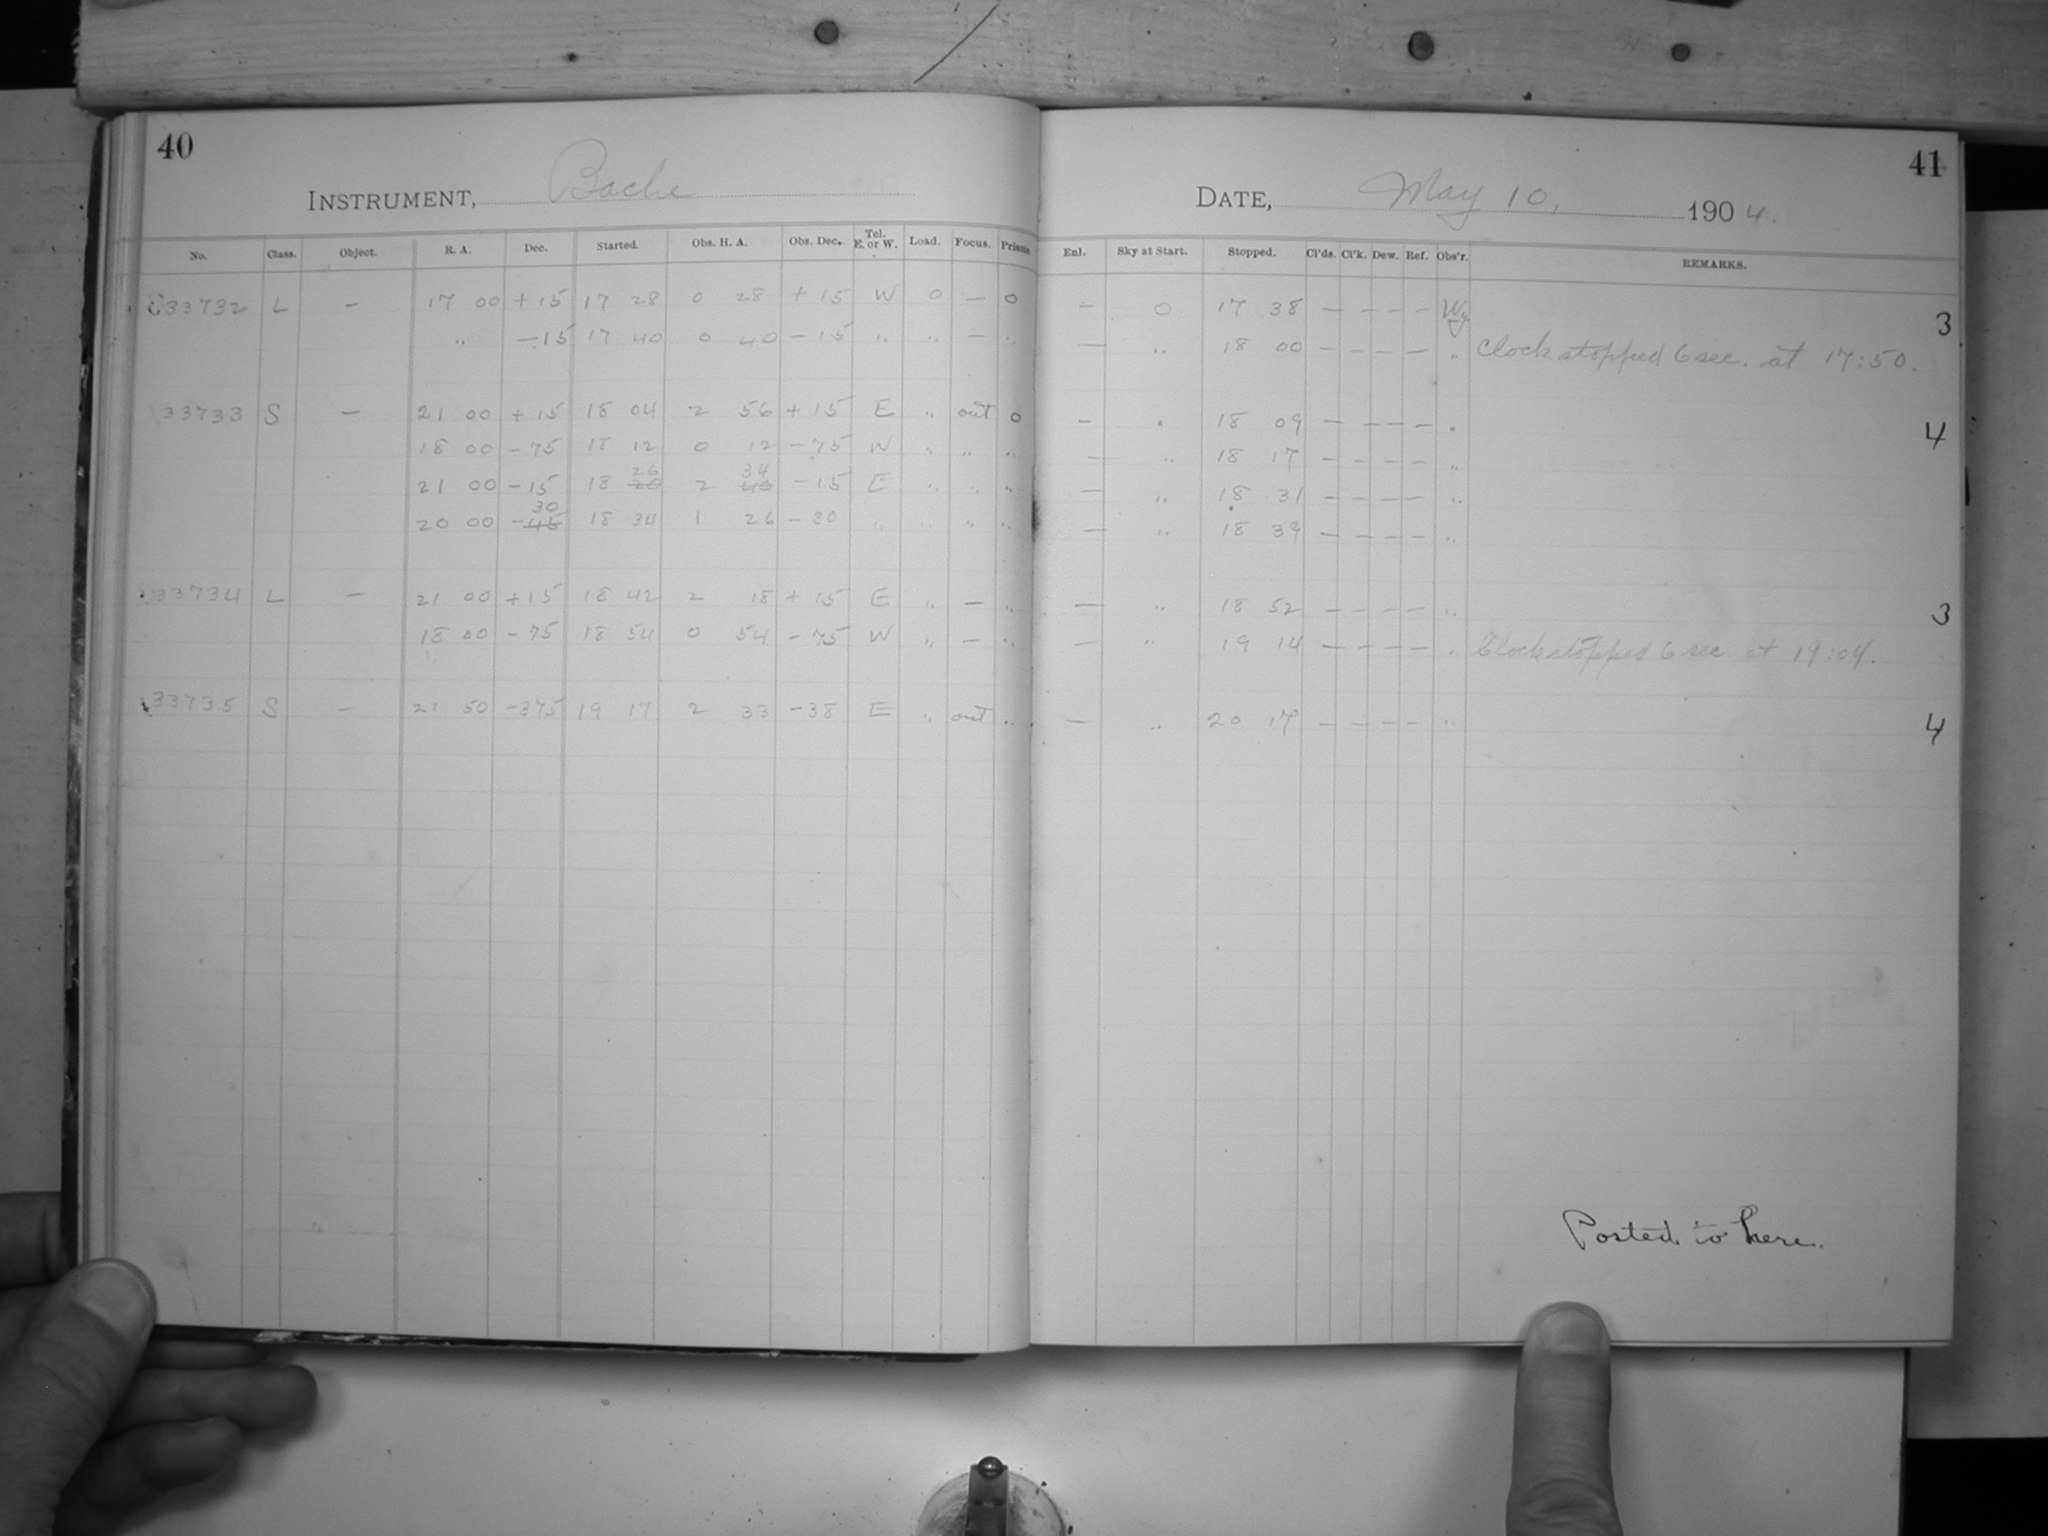 40
INSTRUMENT, Bache
No. Class. Object. R. A. Dec. Started. Obs. H. A. Obs. Dec. Tel. E. or W. Load. Focus. Prisms.
33732 L — 17 00 +15 17 28 0 28 +15 W 0 — 0
" —15 17 40 0 40 —15 " " — "
33733 S — 21 00 +15 18 04 2 56 +15 E " out 0
18 00 -75 18 12 0 12 -75 W " " "
21 00 -15 18 20 26 2 40 34 -15 E " " "
20 00 -45 30 18 34 1 26 -30 " " " "
33734 L — 21 00 +15 18 42 2 18 +15 E " — "
18 00 -75 18 54 0 54 -75 W " — "
33735 S — 21 50 -375 19 17 2 33 -38 E " out "
41
DATE, May 10, 1904.
Enl. Sky at Start. Stopped. Cl'ds. Cl'k. Dew. Ref. Obs'r. REMARKS.
— 0 17 38 — — — — Wy 3
— " 18 00 — — — — " Clock stopped 6 sec. at 17:50.
— " 18 09 — — — — " 4
— " 18 17 — — — — "
— " 18 31 — — — — "
— " 18 39 — — — — "
— " 18 52 — — — — " 3
— " 19 14 — — — — " Clock stopped 6 sec. at 19:04.
— " 20 17 — — — — " 4
Posted to here.